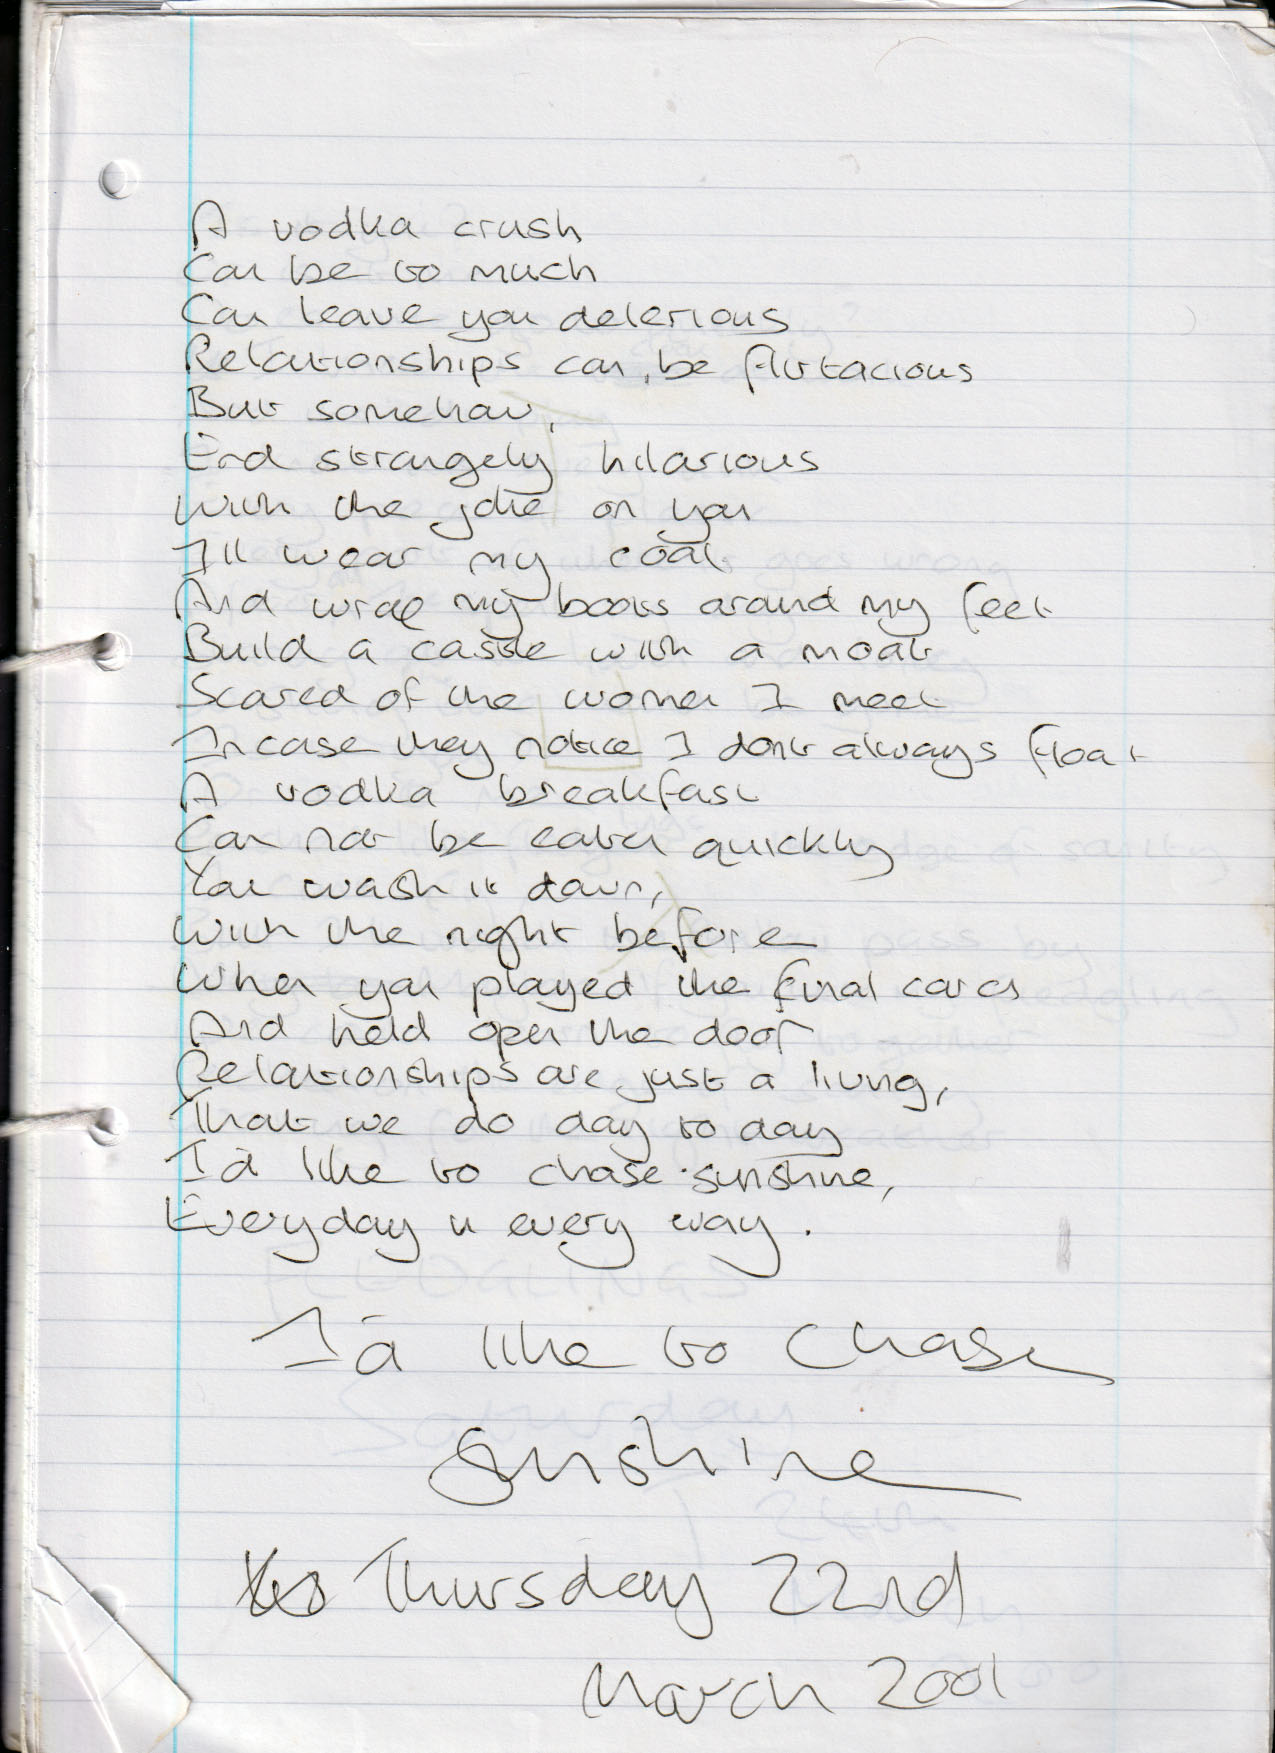 A vodka crush
Can be to much
Can leave you delerious
Relationships can, be flirtacious
But somehow,
End strangely hilarious
With the joke on you
I'll wear my coat
And wrap my boots around my feet
Build a castle with a moat
Scared of the women I meet
Incase they notice I don't always float
A vodka breakfast
Can not be eaten quickly
You wash it down,
With the night before
When you played the final cards
And held open the door
Relationships are just a living,
That we do day to day
I'd like to chase sunshine,
Everyday in every way.
I'd like to chase
Sunshine
Thursday 22nd
March 2001